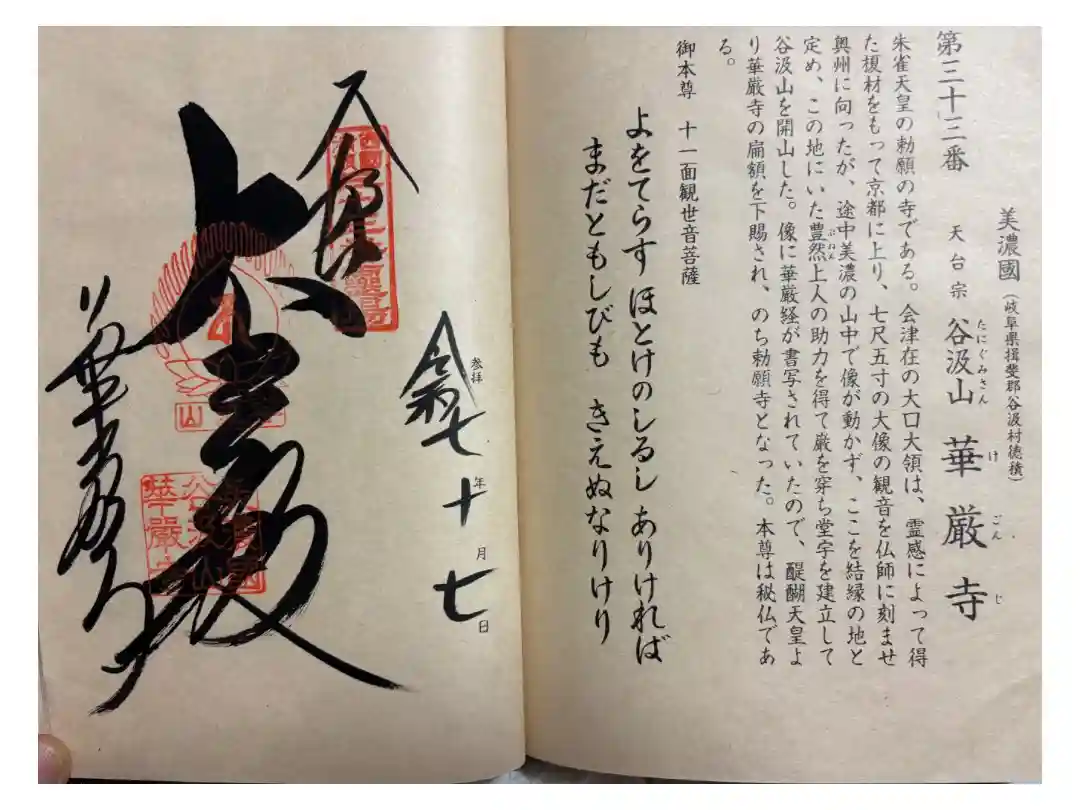 美濃國（岐阜県揖斐郡谷汲村徳積）
第三十三番　天台宗　谷汲山　華厳寺
たにぐみさん　けごんじ
朱雀天皇の勅願の寺である。会津在の大口大領は、霊感によって得
た榎材をもって京都に上り、七尺五寸の大像の観音を仏師に刻ませ
奥州に向ったが、途中美濃の山中で像が動かず、ここを結縁の地と
定め、この地にいた豊然上人の助力を得て厳を穿ち堂宇を建立して
ぶねん
谷汲山を開山した。像に華厳経が書写されていたので、醍醐天皇よ
り華厳寺の扁額を下賜され、のち勅願寺となった。本尊は秘仏であ
る。
御本尊　十一面観世音菩薩
よをてらす　ほとけのしるし　ありければ
まだともしびも　きえぬなりけり
参拝
令和七年十月七日
大悲殿
華厳寺
谷汲山
華嚴寺